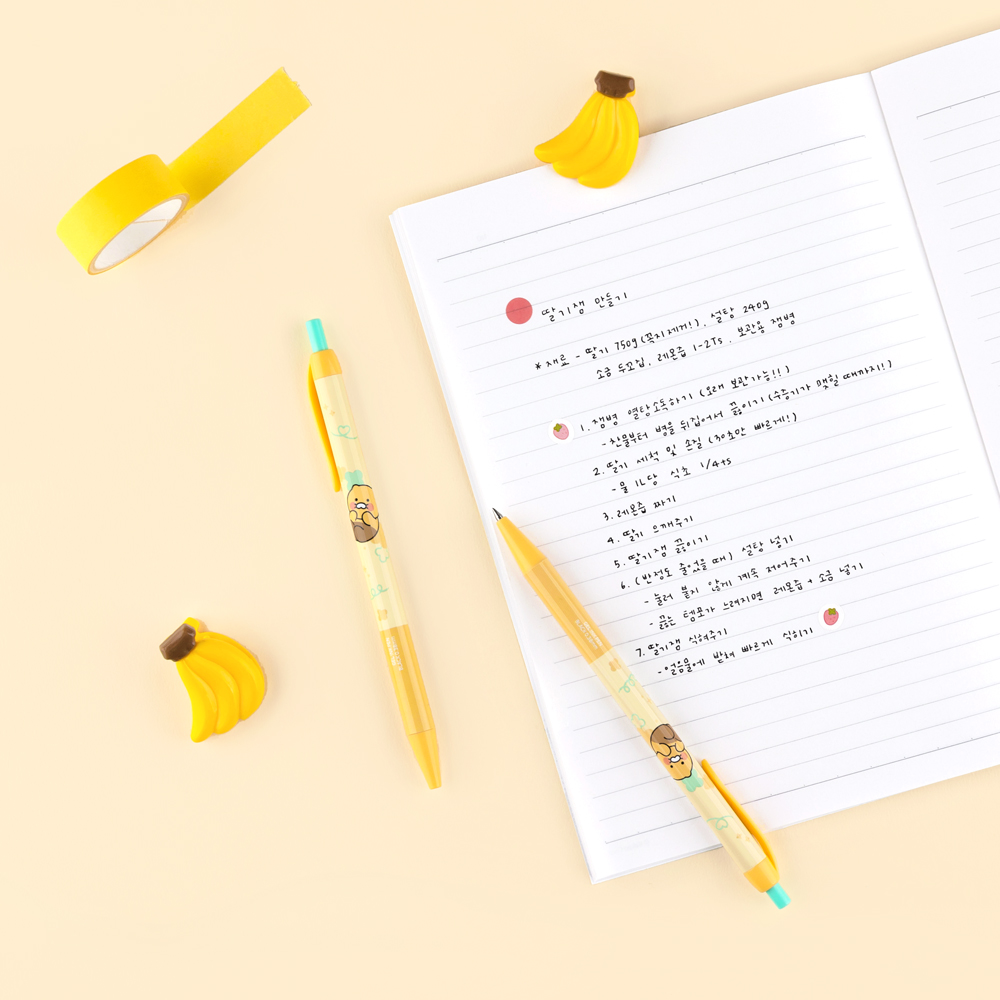 딸기잼 만들기
* 재료 - 딸기 750g (꼭지제거!), 설탕 240g
소금 두꼬집, 레몬즙 1-2Ts, 보관용 잼병
1. 잼병 열탕소독하기 (오래 보관가능!!)
- 찬물부터 병을 뒤집어서 끓이기 (수증기가 맺힐 때까지!)
2. 딸기 세척 및 손질 (30초만 빠르게!)
- 물 1L당 식초 1/4ts
3. 레몬즙 짜기
4. 딸기 으깨주기
5. 딸기잼 끓이기
6. (반정도 줄었을 때) 설탕 넣기
- 눌러 붙지 않게 계속 저어주기
- 끓는 템포가 느려지면 레몬즙 + 소금 넣기
7. 딸기잼 식혀주기
- 얼음물에 받쳐 빠르게 식히기